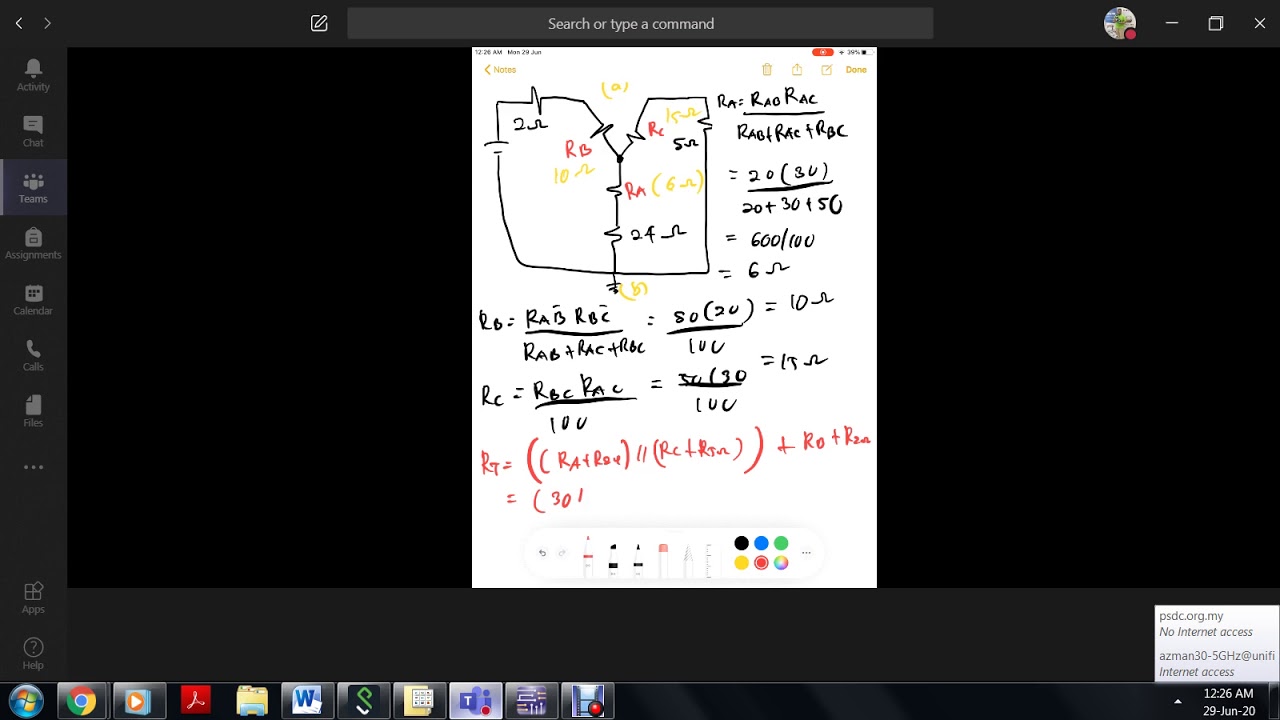 Search or type a command
Activity
Chat
Teams
Assignments
Calendar
Calls
Files
Apps
Help
12:26 AM Mon 29 Jun
39%
Notes
Done
(a)
2Ω
RB
10Ω
RC
15Ω
5Ω
RA (6Ω)
24Ω
(b)
RA = RAB RAC
RAB + RAC + RBC
= 20(30)
20 + 30 + 50
= 600/100
= 6Ω
RB = RAB RBC = 50(20) = 10Ω
RAB + RAC + RBC 100
RC = RBC RAC = 50(30 = 15Ω
100 100
RT = ((RA + R24) // (RC + R5Ω)) + RB + R2Ω
= (30
psdc.org.my
No Internet access
azman30-5GHz@unifi
Internet access
12:26 AM
29-Jun-20